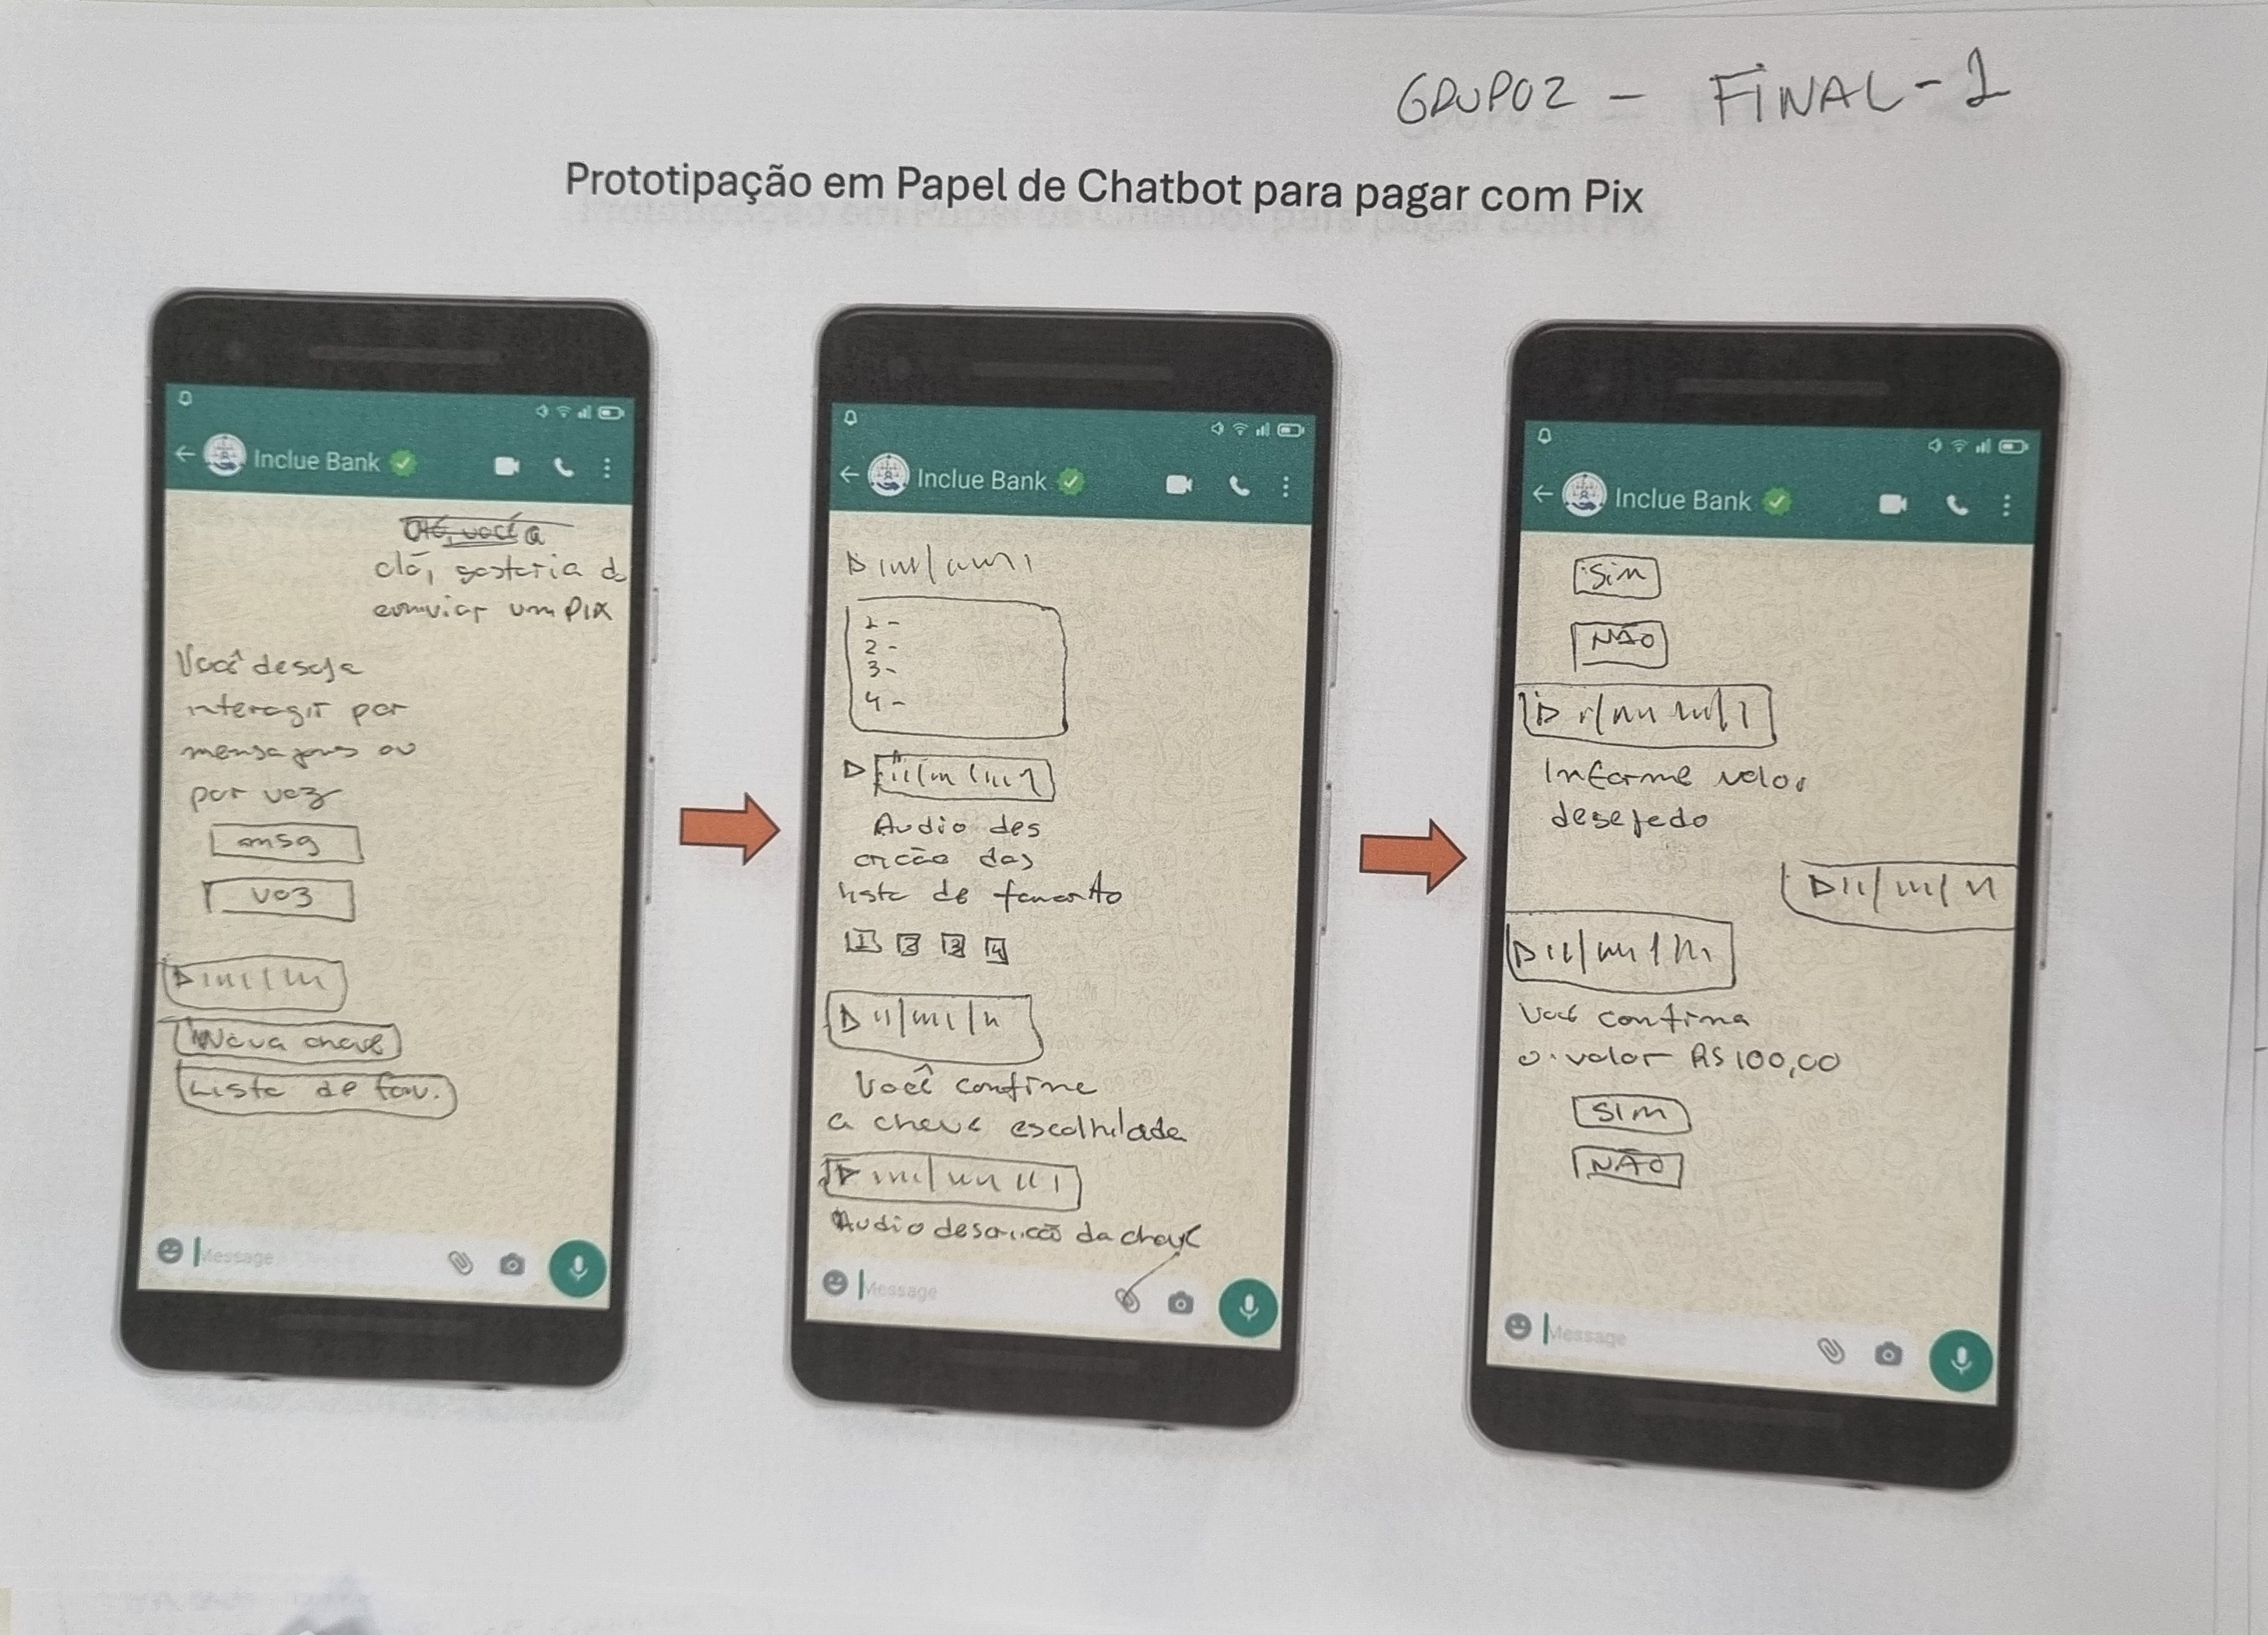 GRUPO2 - FINAL-1
Prototipação em Papel de Chatbot para pagar com Pix
Inclue Bank
olá, gostaria d
enviar um PIX
Você deseja
interagir por
mensagens ou
por voz
msg
voz
Nova chave
Lista de fav.
Message
Inclue Bank
1-
2-
3-
4-
Audio des
crição das
lista de favorito
1 2 3 4
Você confirme
a chave escolhilada
Audio descricão da chave
Message
Inclue Bank
Sim
NÃO
Informe valor
desejado
Você confirma
o valor R$100,00
SIM
NÃO
Message